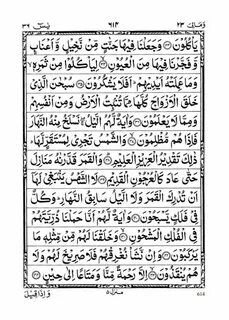 يٰسٓ ٣٦ ٦١٤ وَمَالِیَ ٢٣
يَاْكُلُوْنَ ۝ وَجَعَلْنَا فِيْهَا جَنّٰتٍ مِّنْ نَّخِيْلٍ وَّاَعْنَابٍ
وَّفَجَّرْنَا فِيْهَا مِنَ الْعُيُوْنِ ۝ لِيَاْكُلُوْا مِنْ ثَمَرِهٖ
وَمَا عَمِلَتْهُ اَيْدِيْهِمْ اَفَلَا يَشْكُرُوْنَ ۝ سُبْحٰنَ الَّذِيْ
خَلَقَ الْاَزْوَاجَ كُلَّهَا مِمَّا تُنْۢبِتُ الْاَرْضُ وَمِنْ اَنْفُسِهِمْ
وَمِمَّا لَا يَعْلَمُوْنَ ۝ وَاٰيَةٌ لَّهُمُ الَّيْلُ نَسْلَخُ مِنْهُ النَّهَارَ
فَاِذَا هُمْ مُّظْلِمُوْنَ ۝ وَالشَّمْسُ تَجْرِيْ لِمُسْتَقَرٍّ لَّهَا
ذٰلِكَ تَقْدِيْرُ الْعَزِيْزِ الْعَلِيْمِ ۝ وَالْقَمَرَ قَدَّرْنٰهُ مَنَازِلَ
حَتّٰى عَادَ كَالْعُرْجُوْنِ الْقَدِيْمِ ۝ لَا الشَّمْسُ يَنْۢبَغِيْ لَهَا
اَنْ تُدْرِكَ الْقَمَرَ وَلَا الَّيْلُ سَابِقُ النَّهَارِ وَكُلٌّ
فِيْ فَلَكٍ يَّسْبَحُوْنَ ۝ وَاٰيَةٌ لَّهُمْ اَنَّا حَمَلْنَا ذُرِّيَّتَهُمْ
فِي الْفُلْكِ الْمَشْحُوْنِ ۝ وَخَلَقْنَا لَهُمْ مِّنْ مِّثْلِهٖ مَا
يَرْكَبُوْنَ ۝ وَاِنْ نَّشَاْ نُغْرِقْهُمْ فَلَا صَرِيْخَ لَهُمْ وَلَا
هُمْ يُنْقَذُوْنَ ۝ اِلَّا رَحْمَةً مِّنَّا وَمَتَاعًا اِلٰى حِيْنٍ ۝
وَاِذَا قِيْلَ منزل ٥ 614